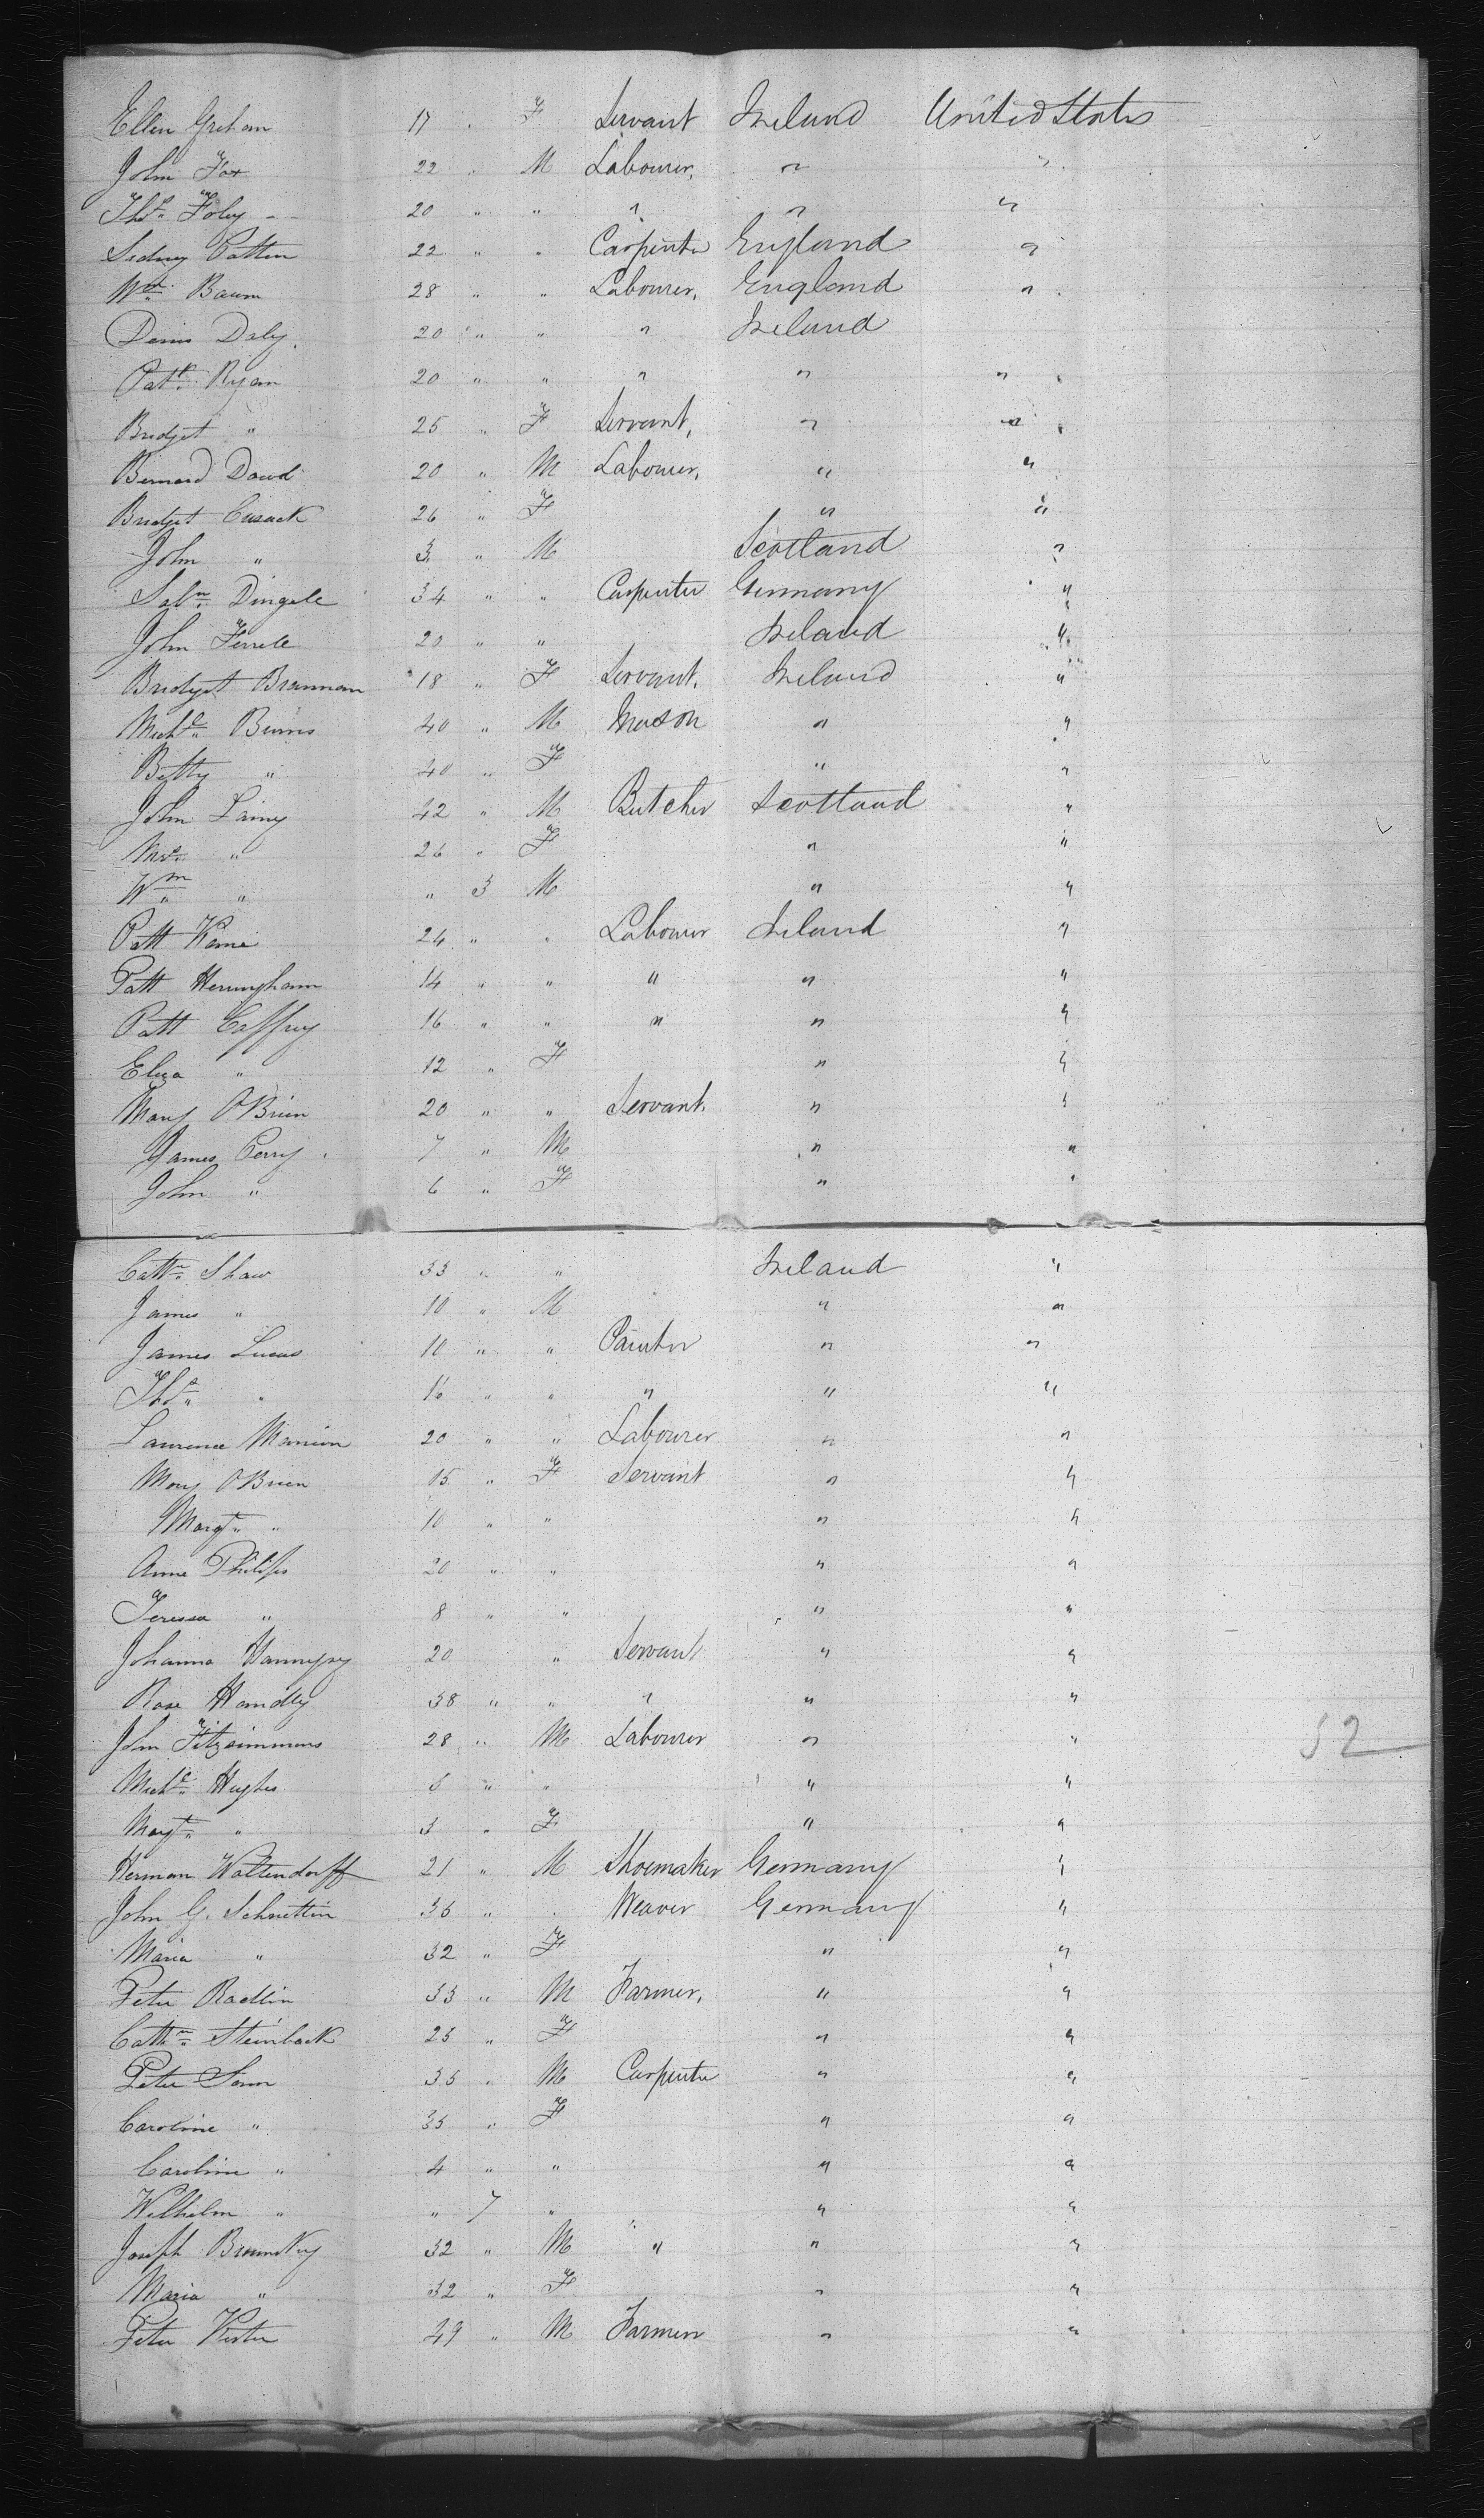 Ellen Graham 17 " F Servant Ireland United States
John Fox 22 " M Labourer, " "
Thos Foley 20 " " " " "
Sedney Patten 22 " " Carpenter England "
Wm Baum 28 " " Labourer, England "
Denis Daly 20 " " " Ireland
Patk Ryan 20 " " " " "
Bridget " 25 " F Servant, " "
Bernard Dowd 20 " M Labourer, " "
Bridget Cusack 26 " F " "
John " 3 " M Scotland "
Sabn Dingele 34 " " Carpenter Germany "
John Ferrele 20 " " Ireland "
Bridget Brannan 18 " F Servant, Ireland "
Michl Burns 40 " M Mason " "
Betty " 40 " F " "
John Lainy 42 " M Butcher Scotland "
Mrs " 26 " F " "
Wm " " 3 M " "
Patt Kane 24 " " Labourer Ireland "
Patt Herringham 14 " " " " "
Patt Caffrey 16 " " " " "
Eliza " 12 " F " "
Mary OBrien 20 " " Servant. " "
James Perry 7 " M " "
John " 6 " F " "
Cathn Shaw 33 " " Ireland "
James " 10 " M " "
James Lucas 10 " " Painter " "
Thos " 16 " " " " "
Laurence Manion 20 " " Labourer " "
Mary OBrien 15 " F Servant " "
Margt " 10 " " " "
Anne Philips 20 " " " "
Teresa " 8 " " " "
Johanna 20 " Servant " "
Rose Handly 38 " " " " "
John Fitzsimmons 28 " M Labourer " "
52
Michl Hughes 6 " " " "
Margt " 3 " F " "
Herman Wattendorff 21 " M Shoemaker Germany "
John G. Schnettin 36 " " Weaver Germany "
Maria " 32 " F " "
Peter Radlin 33 " M Farmer, " "
Cathn Steinback 25 " F " "
Peter Sonn 35 " M Carpenter " "
Caroline " 35 " F " "
Caroline " 4 " " " "
Wilhelm " " 7 " " "
Joseph 32 " M " " "
Maria " 32 " F " "
Peter Kester 49 " M Farmer " "